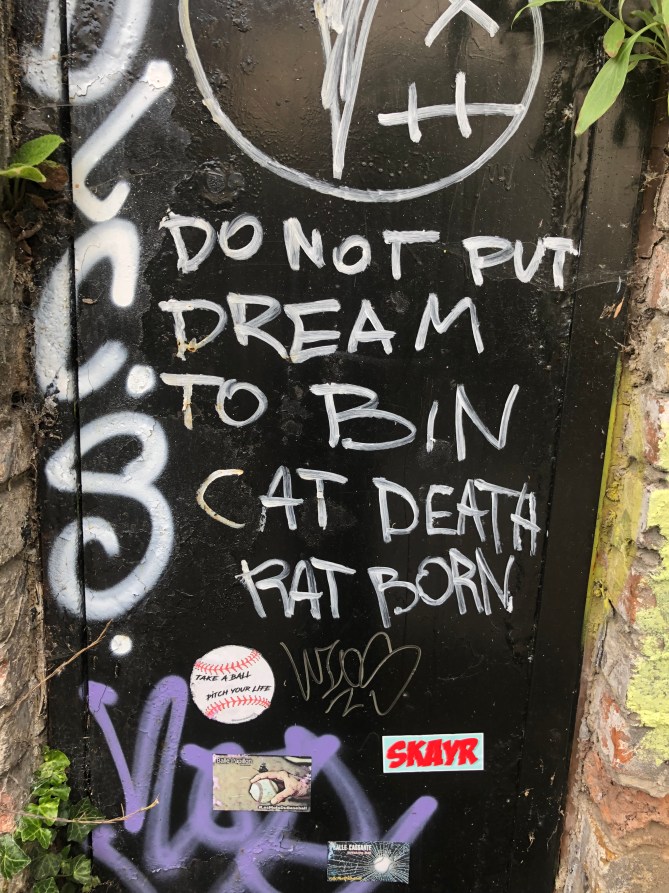 DO NOT PUT
DREAM
TO BIN
CAT DEATH
RAT BORN
TAKE A BALL
PITCH YOUR LIFE
SKAYR
BALLE CASSANTE